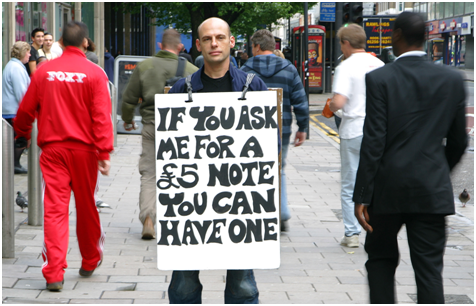 FOXY
IF YOU ASK
ME FOR A
£5 NOTE
YOU CAN
HAVE ONE